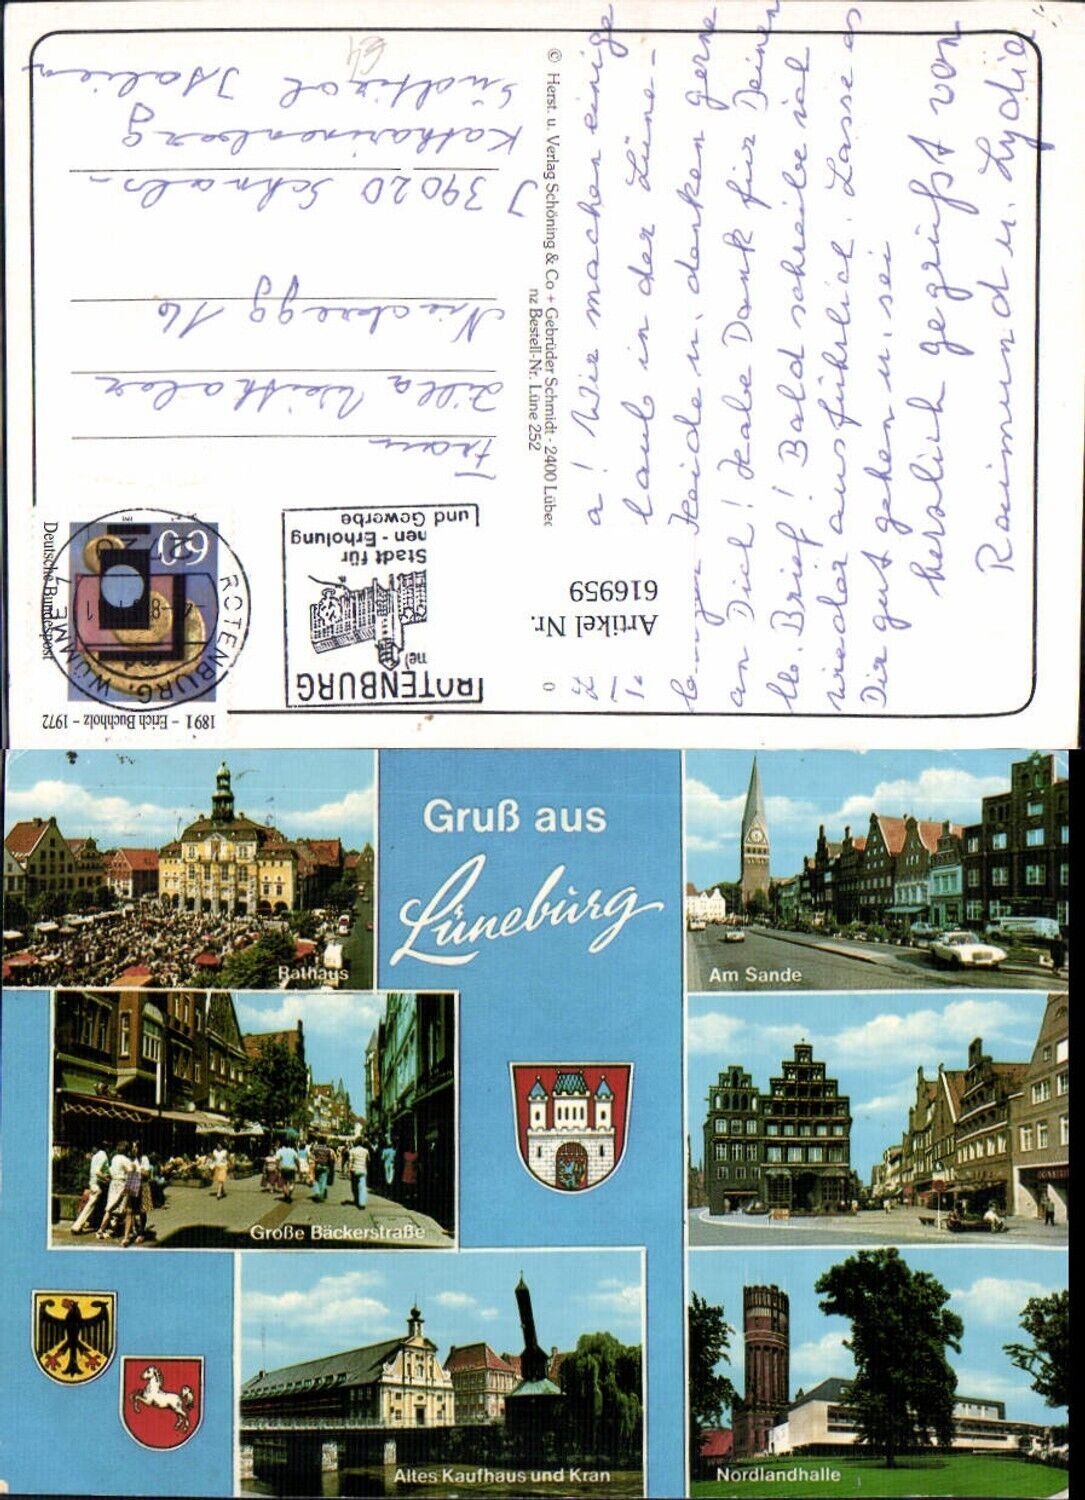 1891 – Erich Buchholz – 1972
60
Deutsche Bundespost
ROTENBURG, WÜMME 1
ROTENBURG
Stadt für
nen - Erholung
und Gewerbe
Artikel Nr.
616959
Frau
Zilla Weithaler
Niederegg 16
I 39020 Schnals-
Katharinenberg
Südtirol Italien
64
© Herst. u. Verlag Schöning & Co + Gebrüder Schmidt · 2400 Lübec
nz Bestell-Nr. Lüne 252
a! Wir machen einige
laub in der Lüne-
Heide u. denken gerne
an Dich! Habe Dank für Deinen
lb. Brief! Bald schreibe ich
wieder ausführlich. Lasse es
Dir gut gehen u. sei
herzlich gegrüßt von
Raimund u. Lydia
Gruß aus
Lüneburg
Rathaus
Am Sande
Große Bäckerstraße
Altes Kaufhaus und Kran
Nordlandhalle